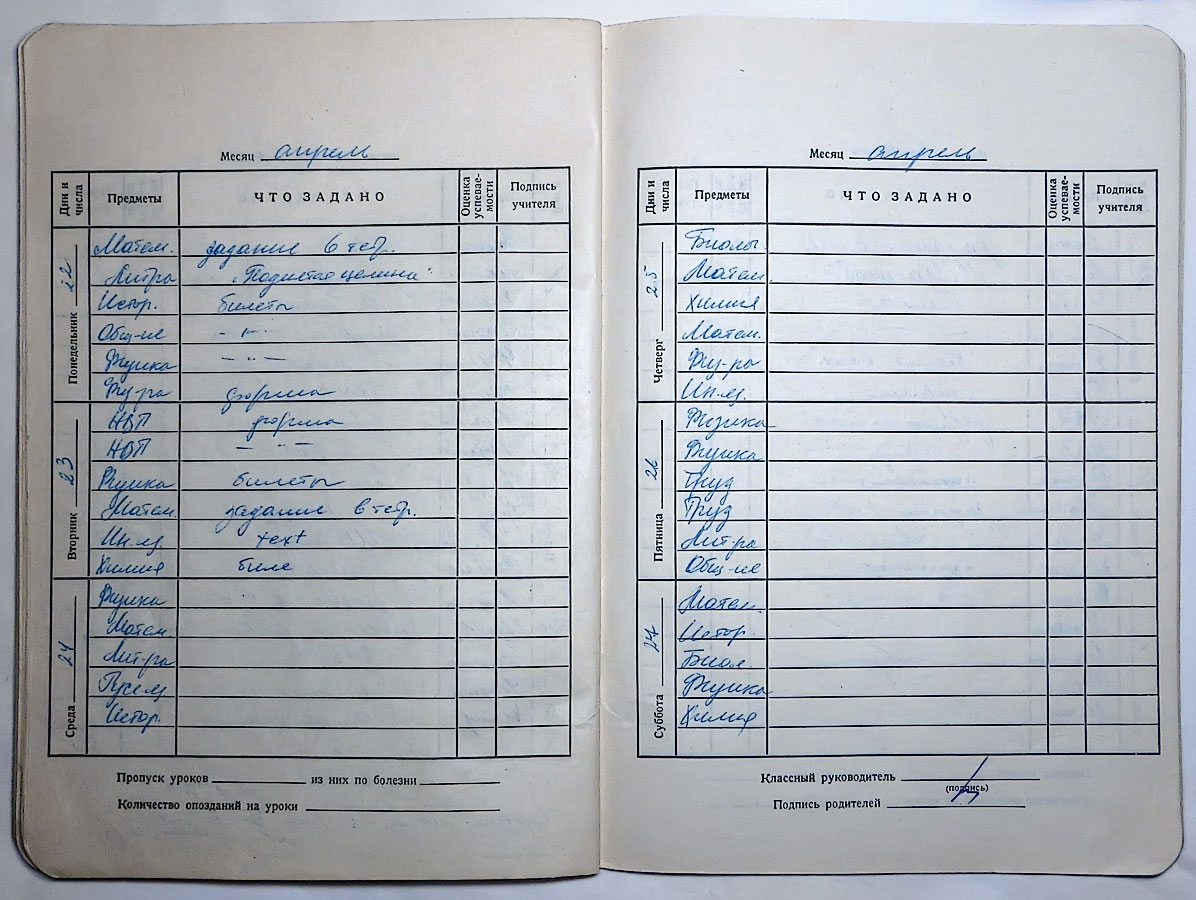 Месяц апрель
Дни и числа Предметы ЧТО ЗАДАНО Оценка успевае-мости Подпись учителя
Понедельник 22
Матем. задание в тетр.
Лит-ра "Поднятая целина"
Истор. билеты
Общ-ие - " -
Физика - " -
Физ-ра форма
Вторник 23
НВП форма
НВП - " -
Физика билеты
Матем. задание в тетр.
Ин.яз. text
Химия биле
Среда 24
Физика
Матем
Лит-ра
Рус.яз
Истор.
Пропуск уроков из них по болезни
Количество опозданий на уроки
Месяц апрель
Дни и числа Предметы ЧТО ЗАДАНО Оценка успевае-мости Подпись учителя
Четверг 25
Биолог
Матем
Химия
Матем.
Физ-ра
Ин.яз.
Пятница 26
Физика
Физика
Труд
Труд
Лит-ра
Общ-ие
Суббота 27
Матем.
Истор.
Биол.
Физика
Химия
Классный руководитель
(подпись)
Подпись родителей